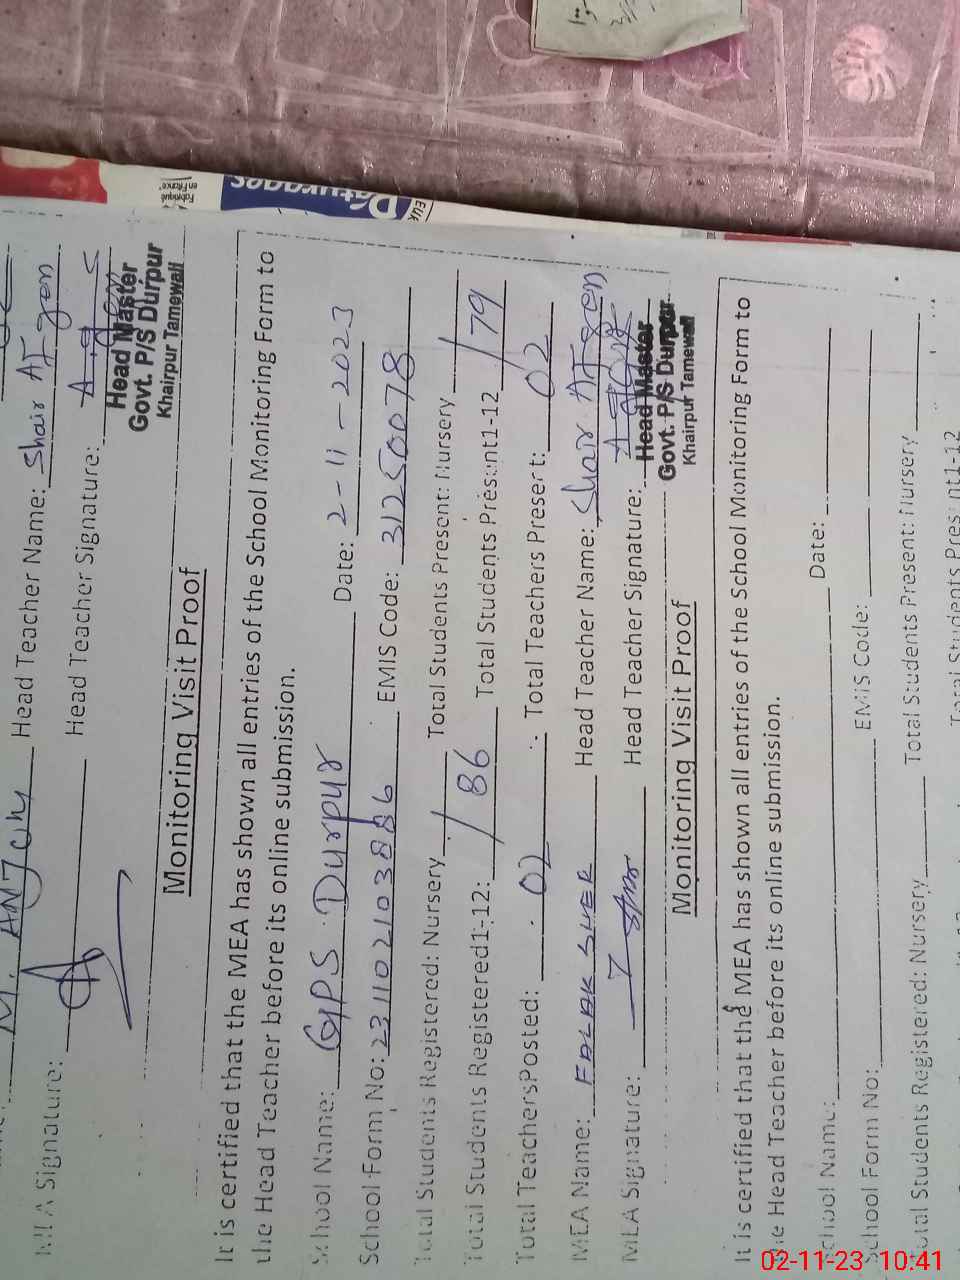 M. AMJad Head Teacher Name: Shair AFgan
MEA Signature: Head Teacher Signature:
Head Master
Govt. P/S Durpur
Khairpur Tamewali
Monitoring Visit Proof
It is certified that the MEA has shown all entries of the School Monitoring Form to
the Head Teacher before its online submission.
School Name: GPS Durpur Date: 2-11-2023
School Form No: 2311021038886 EMIS Code: 31250078
Total Students Registered: Nursery / Total Students Present: Nursery /
Total Students Registered1-12: 86 Total Students Present1-12 79
Total TeachersPosted: 02 Total Teachers Present: 02
MEA Name: FALAK SHER Head Teacher Name: Shair AFgan
MEA Signature: Head Teacher Signature:
Head Master
Govt. P/S Durpur
Khairpur Tamewali
Monitoring Visit Proof
It is certified that the MEA has shown all entries of the School Monitoring Form to
the Head Teacher before its online submission.
School Name: Date:
School Form No: EMIS Code:
Total Students Registered: Nursery Total Students Present: Nursery
Total Students Present1-12
Fabriqué
en France
Pâturages
02-11-23 10:41